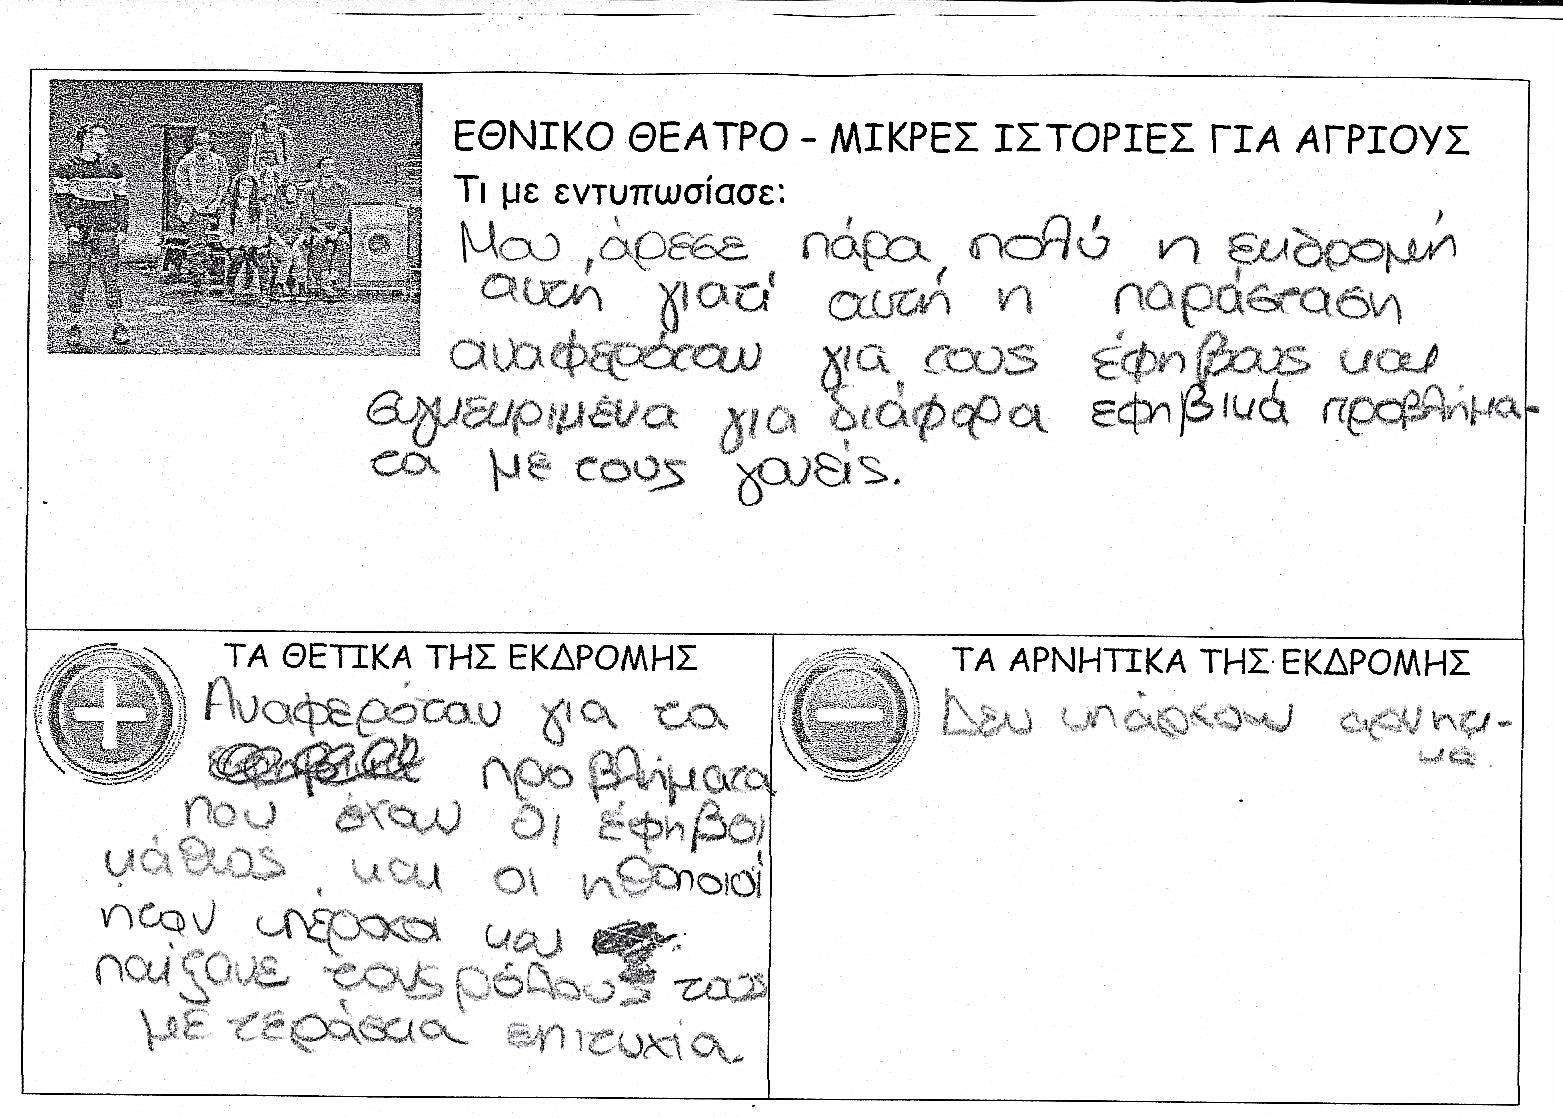 ΕΘΝΙΚΟ ΘΕΑΤΡΟ - ΜΙΚΡΕΣ ΙΣΤΟΡΙΕΣ ΓΙΑ ΑΓΡΙΟΥΣ
Τι με εντυπωσίασε:
Μου άρεσε πάρα πολύ η εκδρομή
αυτή γιατί αυτή η παράσταση
αναφερόταν για τους έφηβους και
συγκεκριμένα για διάφορα εφηβικά προβλήμα-
τα με τους γονείς.
ΤΑ ΘΕΤΙΚΑ ΤΗΣ ΕΚΔΡΟΜΗΣ
Αναφερόταν για τα
προβλήματα
που έχουν οι έφηβοι
κάθως και οι ηθοποιοί
ήταν υπέροχοι και
παίξανε τους ρόλους τους
με τεράστια επιτυχία
ΤΑ ΑΡΝΗΤΙΚΑ ΤΗΣ ΕΚΔΡΟΜΗΣ
Δεν υπάρχουν αρνητι-
κα.